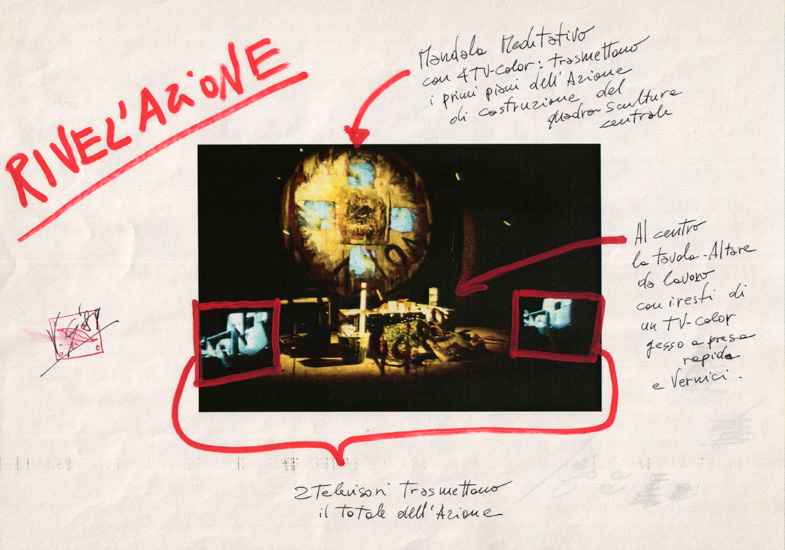 RIVEL'AZIONE
Mandala Meditativo
con 4 TV-color: trasmettono
i primi piani dell'Azione
di costruzione del
quadro-scultura
centrale
Al centro
la tavola-Altare
da lavoro
con i resti di
un TV-color
gesso a presa
rapida
e Vernici.
2 Televisori trasmettono
il totale dell'Azione